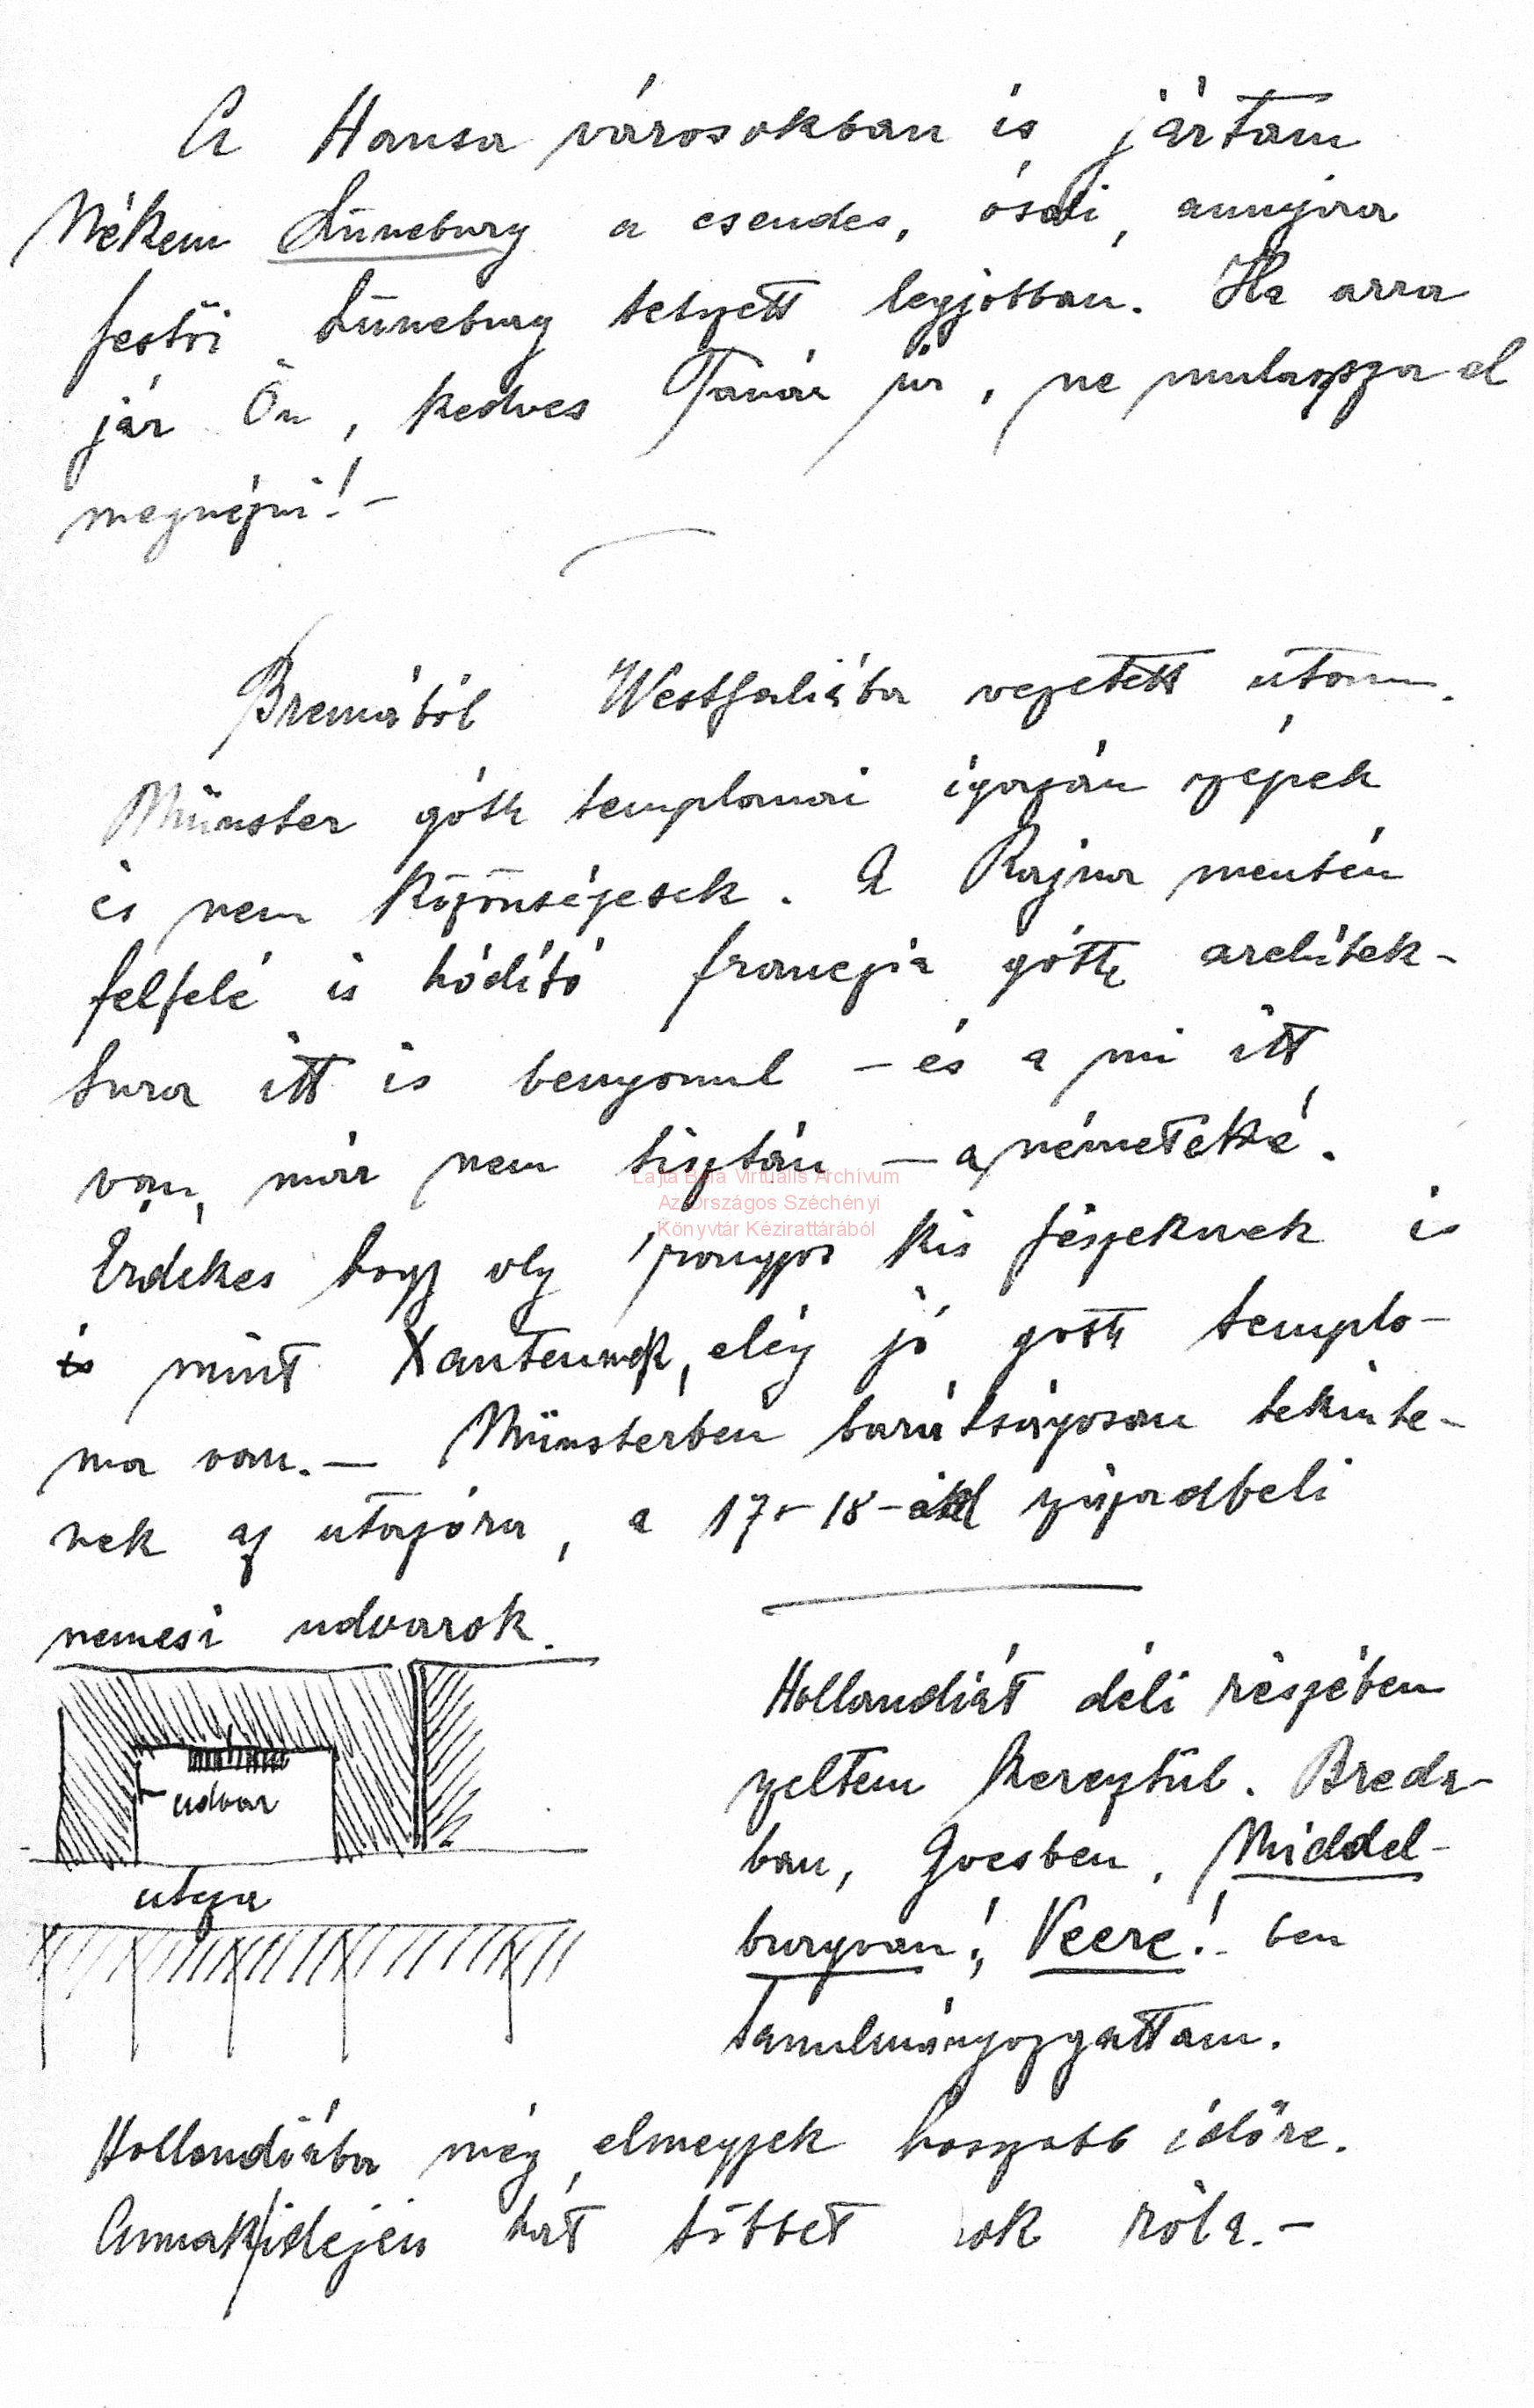 A Hansa városokban is jártam
Nékem Lüneburg a csendes, ósdi, annyira
festői Lüneburg tetszett legjobban. Ha arra
jár Ön, kedves Tanár úr, ne mulassza el
megnézni! –
Bremából Westfaliába vezetett utam.
Münster góth templomai igazán szépek
és nem közönségesek. A Rajna mentén
felfelé is hódító francia góth architek-
tura itt is benyomul – és a mi itt
van, már nem tisztán – a németeké.
Érdekes hogy oly rongyos kis fészeknek is
is mint Xantennek, elég jó goth templo-
ma van. – Münsterben barátságosan tekinte-
nek az utazóra, a 17- 18-ik századbeli
nemesi udvarok.
udvar
utcza
Hollandiát déli részében
szeltem keresztül. Breda-
ban, Goesben, Middel-
burgvan!, Veere! ben
tanulmányozgattam.
Hollandiába még elmegyek hosszabb időre.
Annakidején hát többet irok róla. –
Lajta Béla Virtuális Archívum
Az Országos Széchényi
Könyvtár Kézirattárából